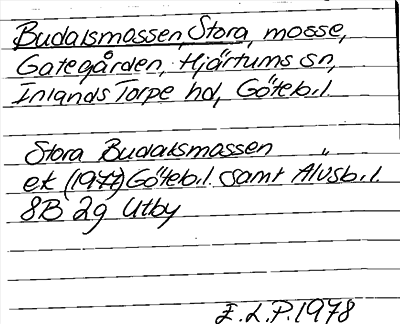 Budalsmossen, Stora, mosse,
Gategården, Hjärtums sn,
Inlands Torpe hd, Göteb.l.
Stora Budalsmossen "
ek (1977) Göteb.l. samt Älvsb.l.
8B 2g Utby
E.L.P. 1978